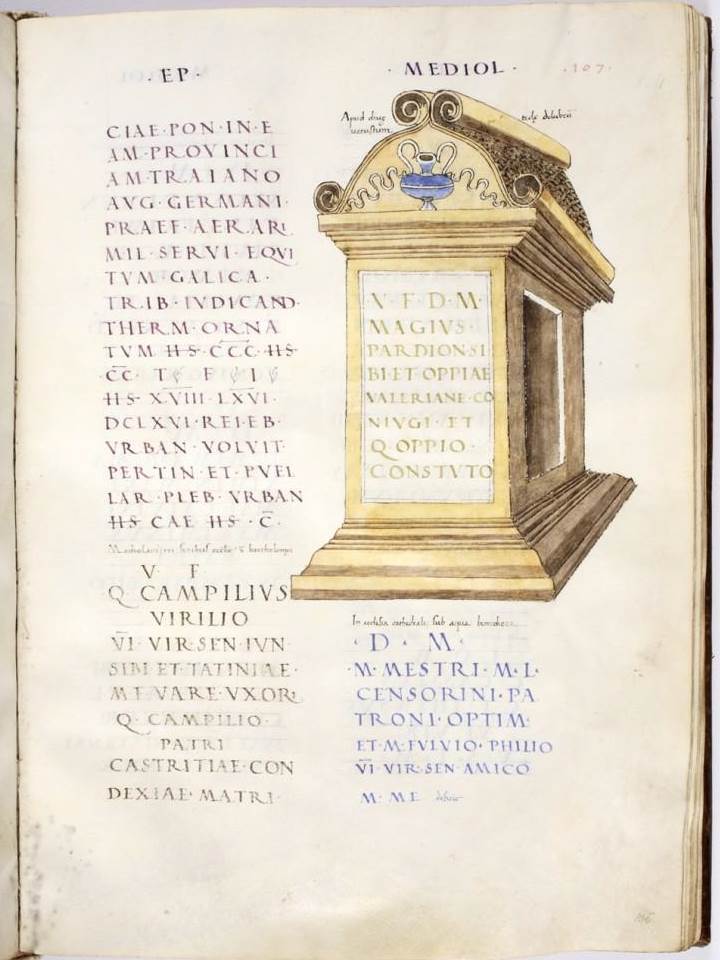 · EP ·
· MEDIOL ·
· 107 ·
CIAE · PON · IN · E
AM · PROVINCI
AM · TRAIANO
AVG · GERMANI ·
PRAEF · AER · ARI
MIL · SERVI · EQVI
TVM · GALICA ·
TRIB · IVDICAND ·
THERM · ORNA
TVM HS · CCC · HS ·
· CC · T F I
HS · XVIII · LXVI ·
DCLXVI · REI · EB ·
VRBAN · VOLVIT ·
PERTIN · ET · PVEL
LAR · PLEB · VRBAN
HS CAE HS · C ·
V F
Q CAMPILIVS
VIRILIO
VI · VIR · SEN · IVN ·
SIBI · ET · TATINIAE ·
M · F · VARE · VXORI
Q · CAMPILIO ·
PATRI
CASTRITIAE · CON
DEXIAE · MATRI ·
Apud
uetustum
V · F · D · M ·
MAGIVS ·
PARDION · SI
BI · ET · OPPIAE
VALERIANE · CO
NIVGI · ET
Q OPPIO ·
CONSTVTO
In ecclesia cathedrali sub aqua
· D · M ·
· M · MESTRI · M · L ·
CENSORINI · PA
TRONI · OPTIM ·
ET · M · FVLVIO · PHILIO
VI · VIR · SEN · AMICO
M · ME